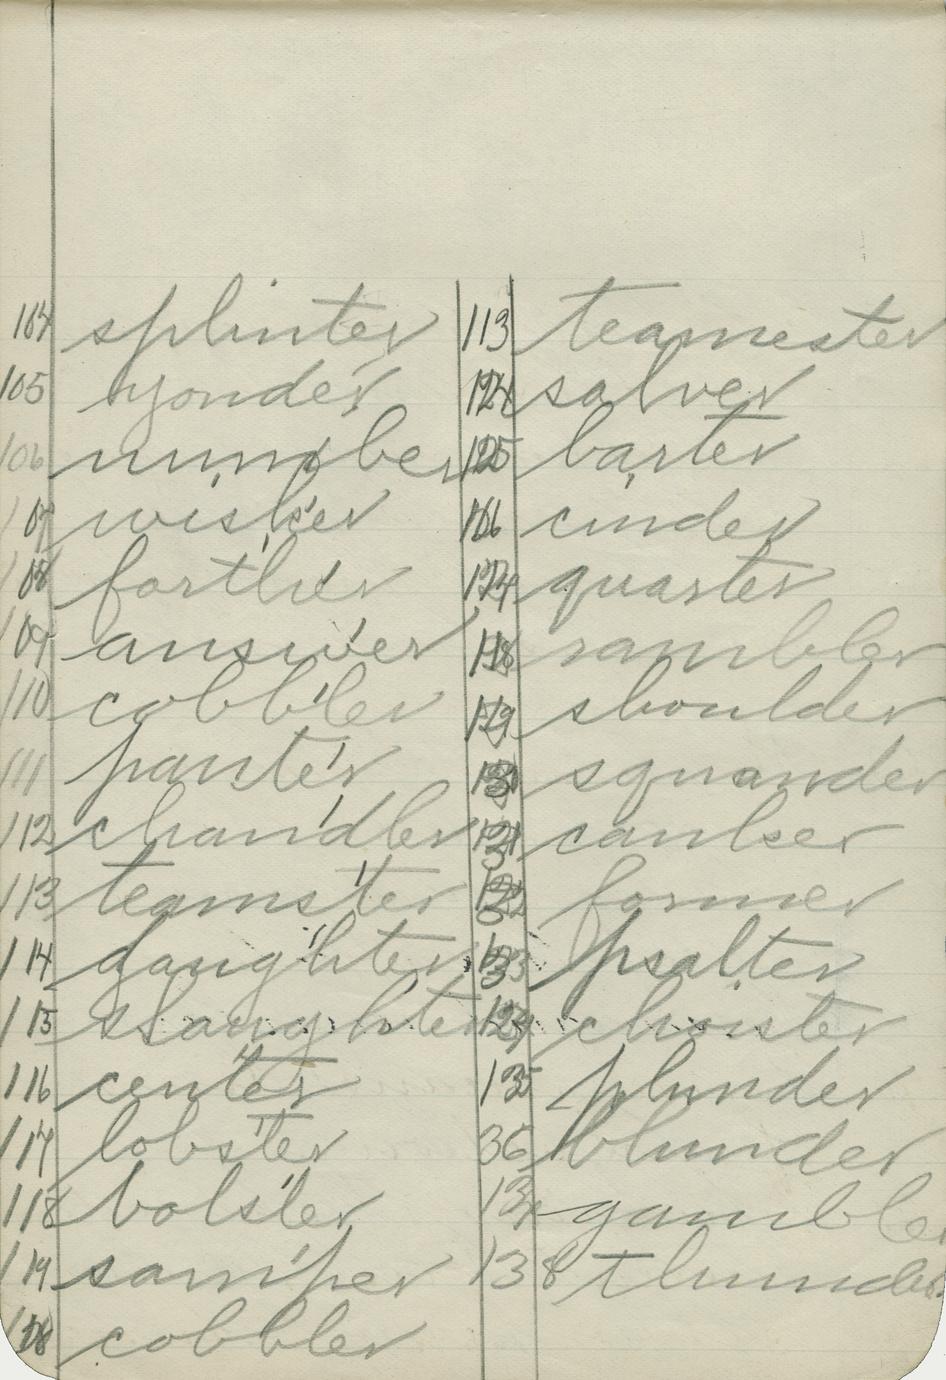 104 splinter
105 yonder
106 number
107 wisker
108 forther
109 answer
110 cobbler
111 panter
112 chandler
113 teamster
114 daughter
115 slaughter
116 center
117 lobster
118 bolster
119 samper
cobbler
113 teamester
salver
barter
cinder
quarter
rambler
shoulder
squander
caulser
former
psalter
choister
135 plunder
36 blunder
gambler
138 thunder